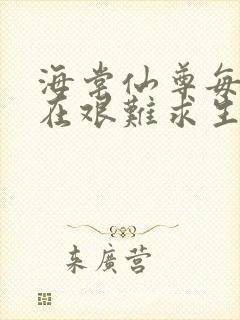 海棠仙尊每
在艰難求生
来廣营